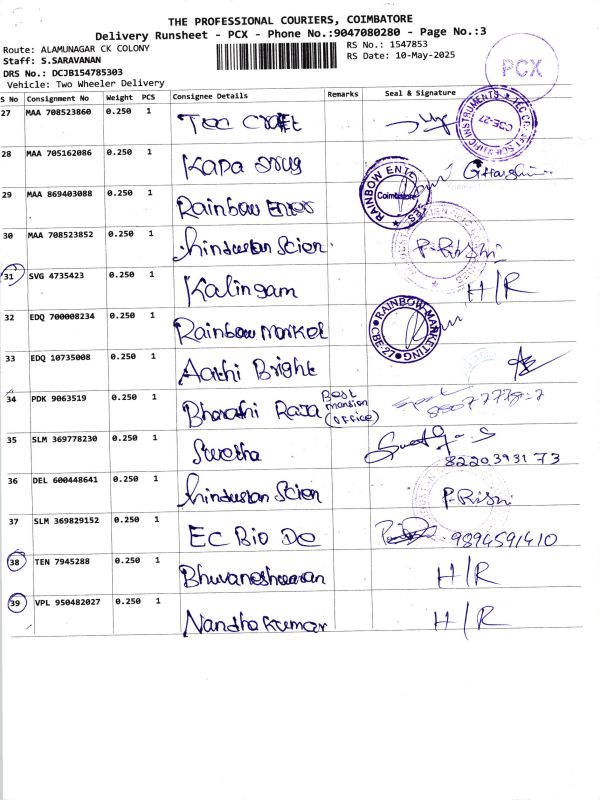 THE PROFESSIONAL COURIERS, COIMBATORE
Delivery Runsheet - PCX - Phone No.:9047080280 - Page No.:3
Route: ALAMUNAGAR CK COLONY
RS No.: 1547853
Staff: S.SARAVANAN
RS Date: 10-May-2025
DRS No.: DCJB154785303
Vehicle: Two Wheeler Delivery
PCX
S No Consignment No Weight PCS Consignee Details Remarks Seal & Signature
27 MAA 708523860 0.250 1 Tec Craft
28 MAA 705162086 0.250 1 Kapa Drug
29 MAA 869403088 0.250 1 Rainbow Enter RAINBOW ENTE Coimbatore
30 MAA 708523852 0.250 1 hindustan Scien P-Rishi
31 SVG 4735423 0.250 1 Kalingam H/R
32 EDQ 700008234 0.250 1 Rainbow Market RAINBOW-MARKETING CBE-27
33 EDQ 10735008 0.250 1 Aathi Bright
34 PDK 9063519 0.250 1 Bharathi Raja Best mansion (office)
35 SLM 369778230 0.250 1 Swetha 8220393173
36 DEL 600448641 0.250 1 hindustan Scien P-Rishi
37 SLM 369829152 0.250 1 EC Bio De 9894591410
38 TEN 7945288 0.250 1 Bhuvaneshwaran H/R
39 VPL 950482027 0.250 1 Nandhakumar H/R